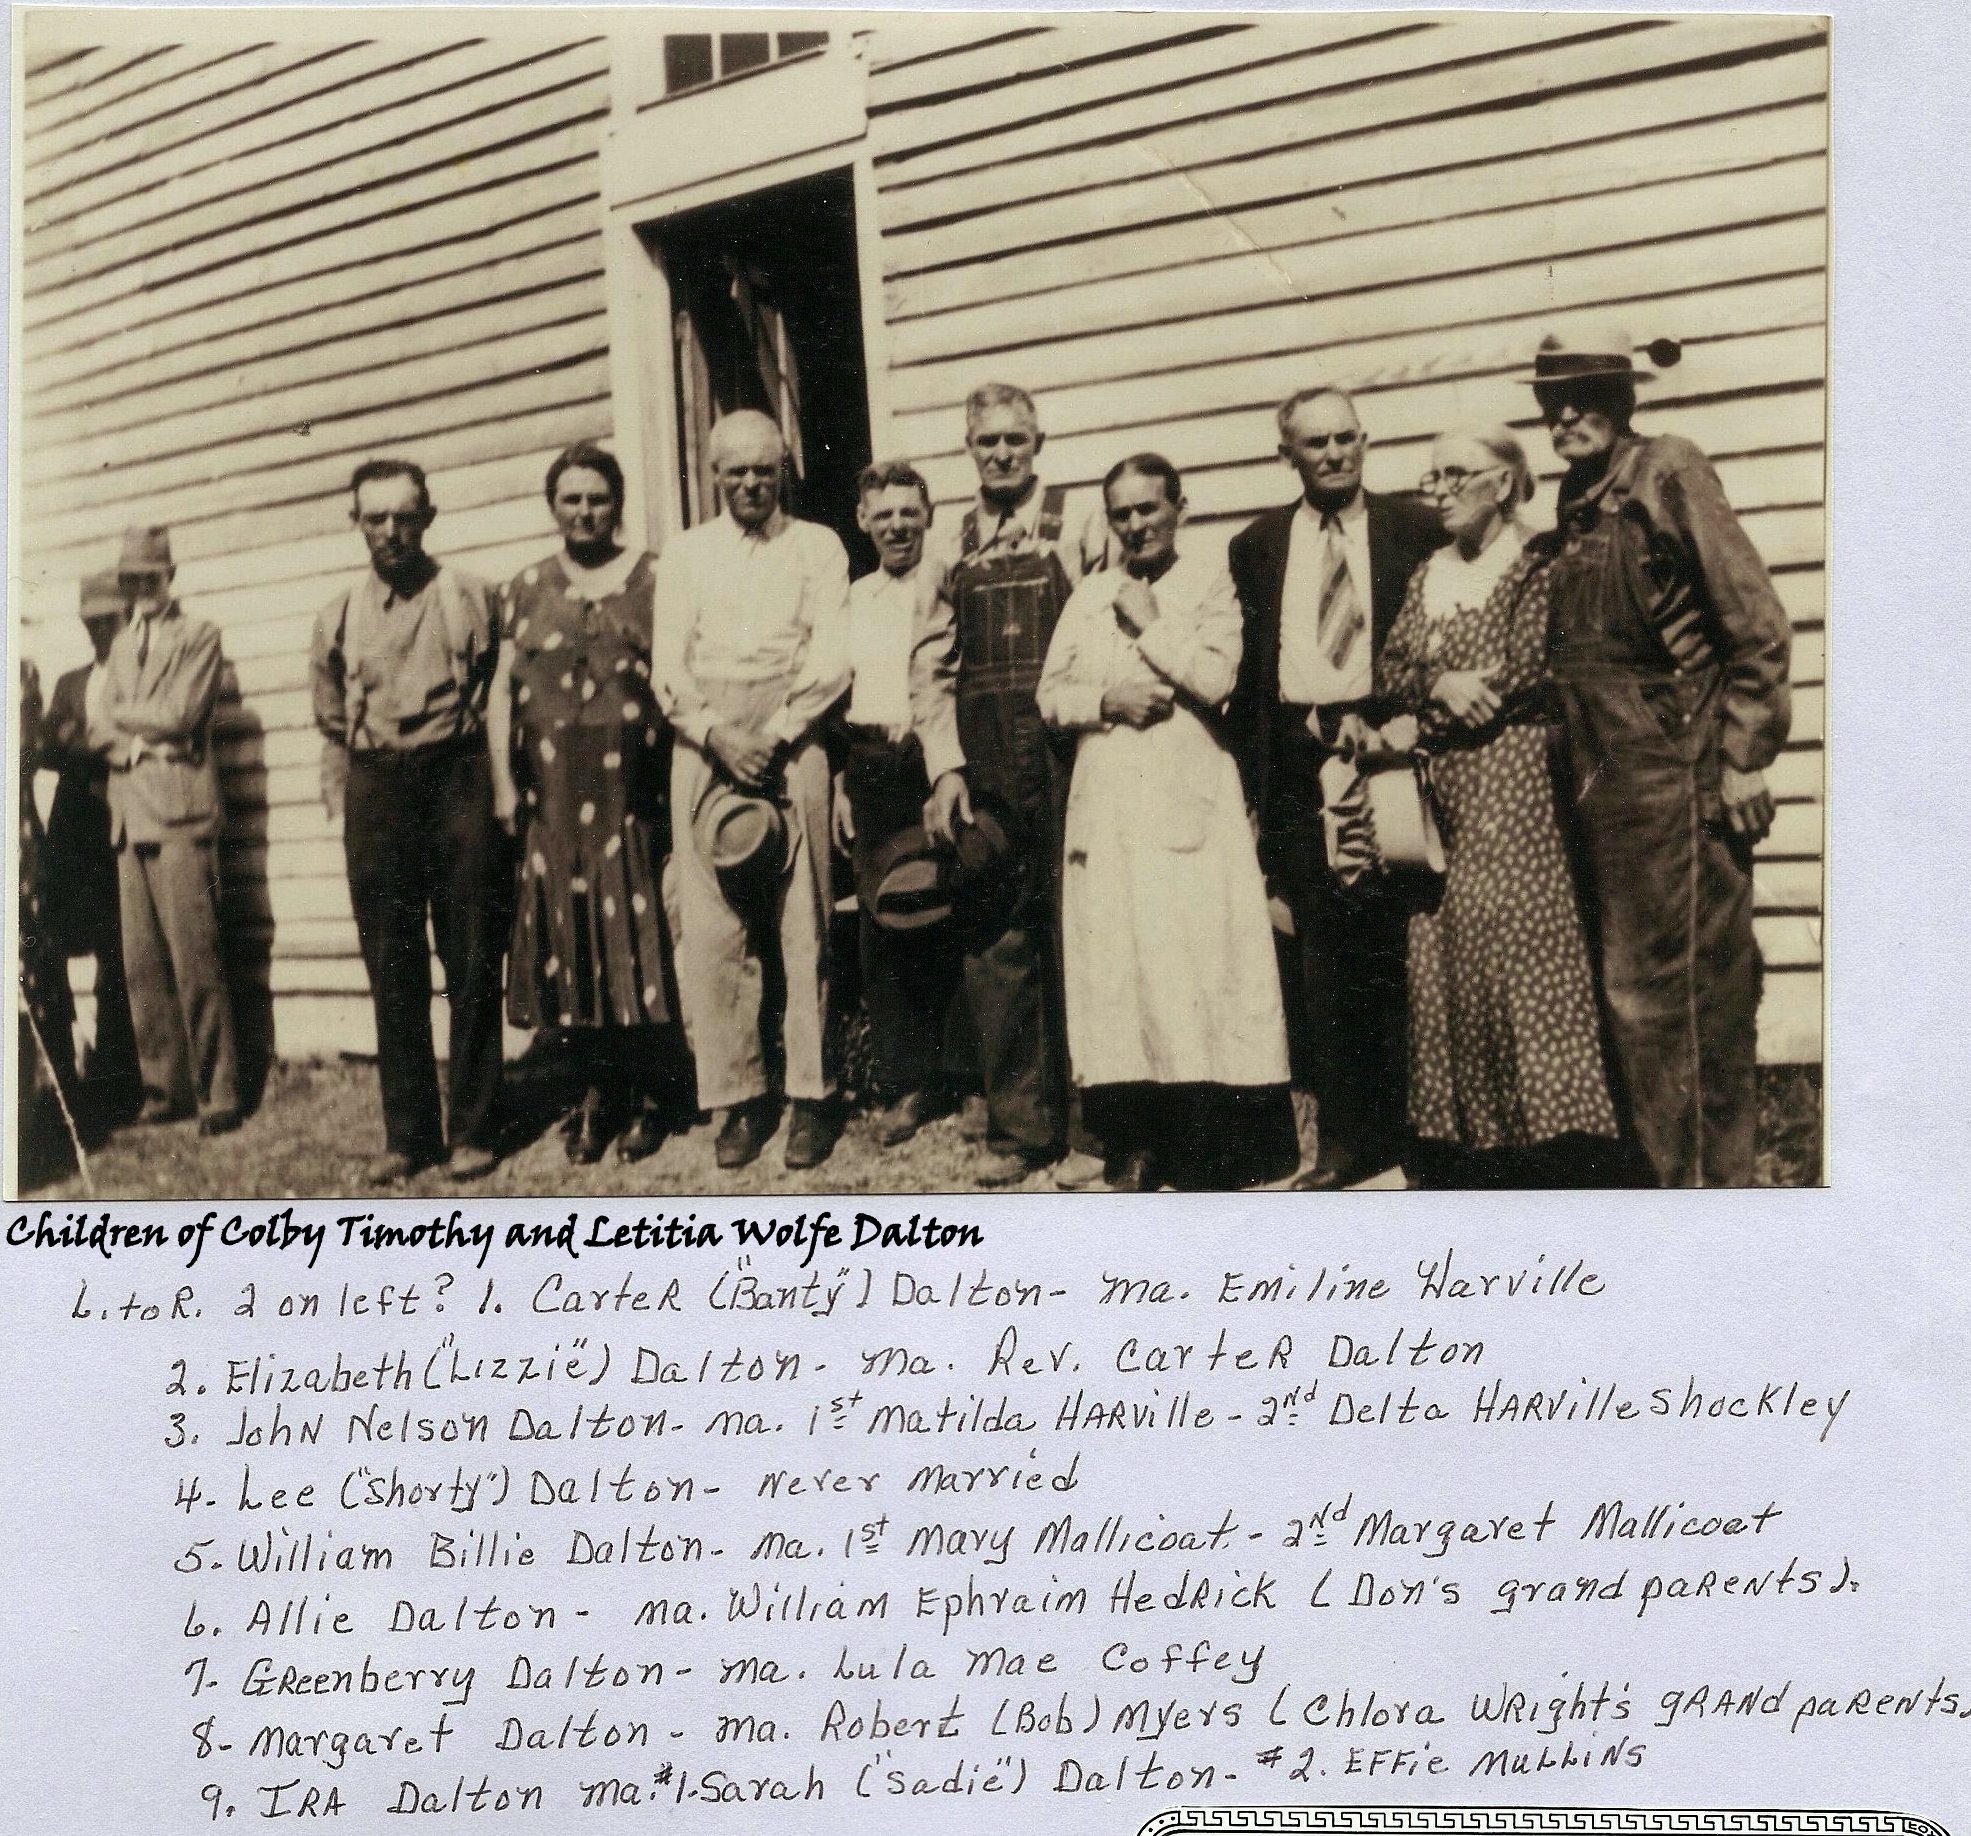 Children of Colby Timothy and Letitia Wolfe Dalton
L. to R. 2 on left? 1. Carter ("Banty") Dalton - ma. Emiline Harville
2. Elizabeth ("Lizzie") Dalton - ma. Rev. Carter Dalton
3. John Nelson Dalton - ma. 1st Matilda Harville - 2nd Delta Harville Shockley
4- Lee ("Shorty") Dalton - never married
5- William Billie Dalton - ma. 1st Mary Mallicoat - 2nd Margaret Mallicoat
6. Allie Dalton - ma. William Ephraim Hedrick (Don's grandparents).
7- Greenberry Dalton - ma. Lula Mae Coffey
8- Margaret Dalton - ma. Robert (Bob) Myers (Chlora Wright's grandparents.
9. Ira Dalton ma. #1. Sarah ("Sadie") Dalton - #2. Effie Mullins